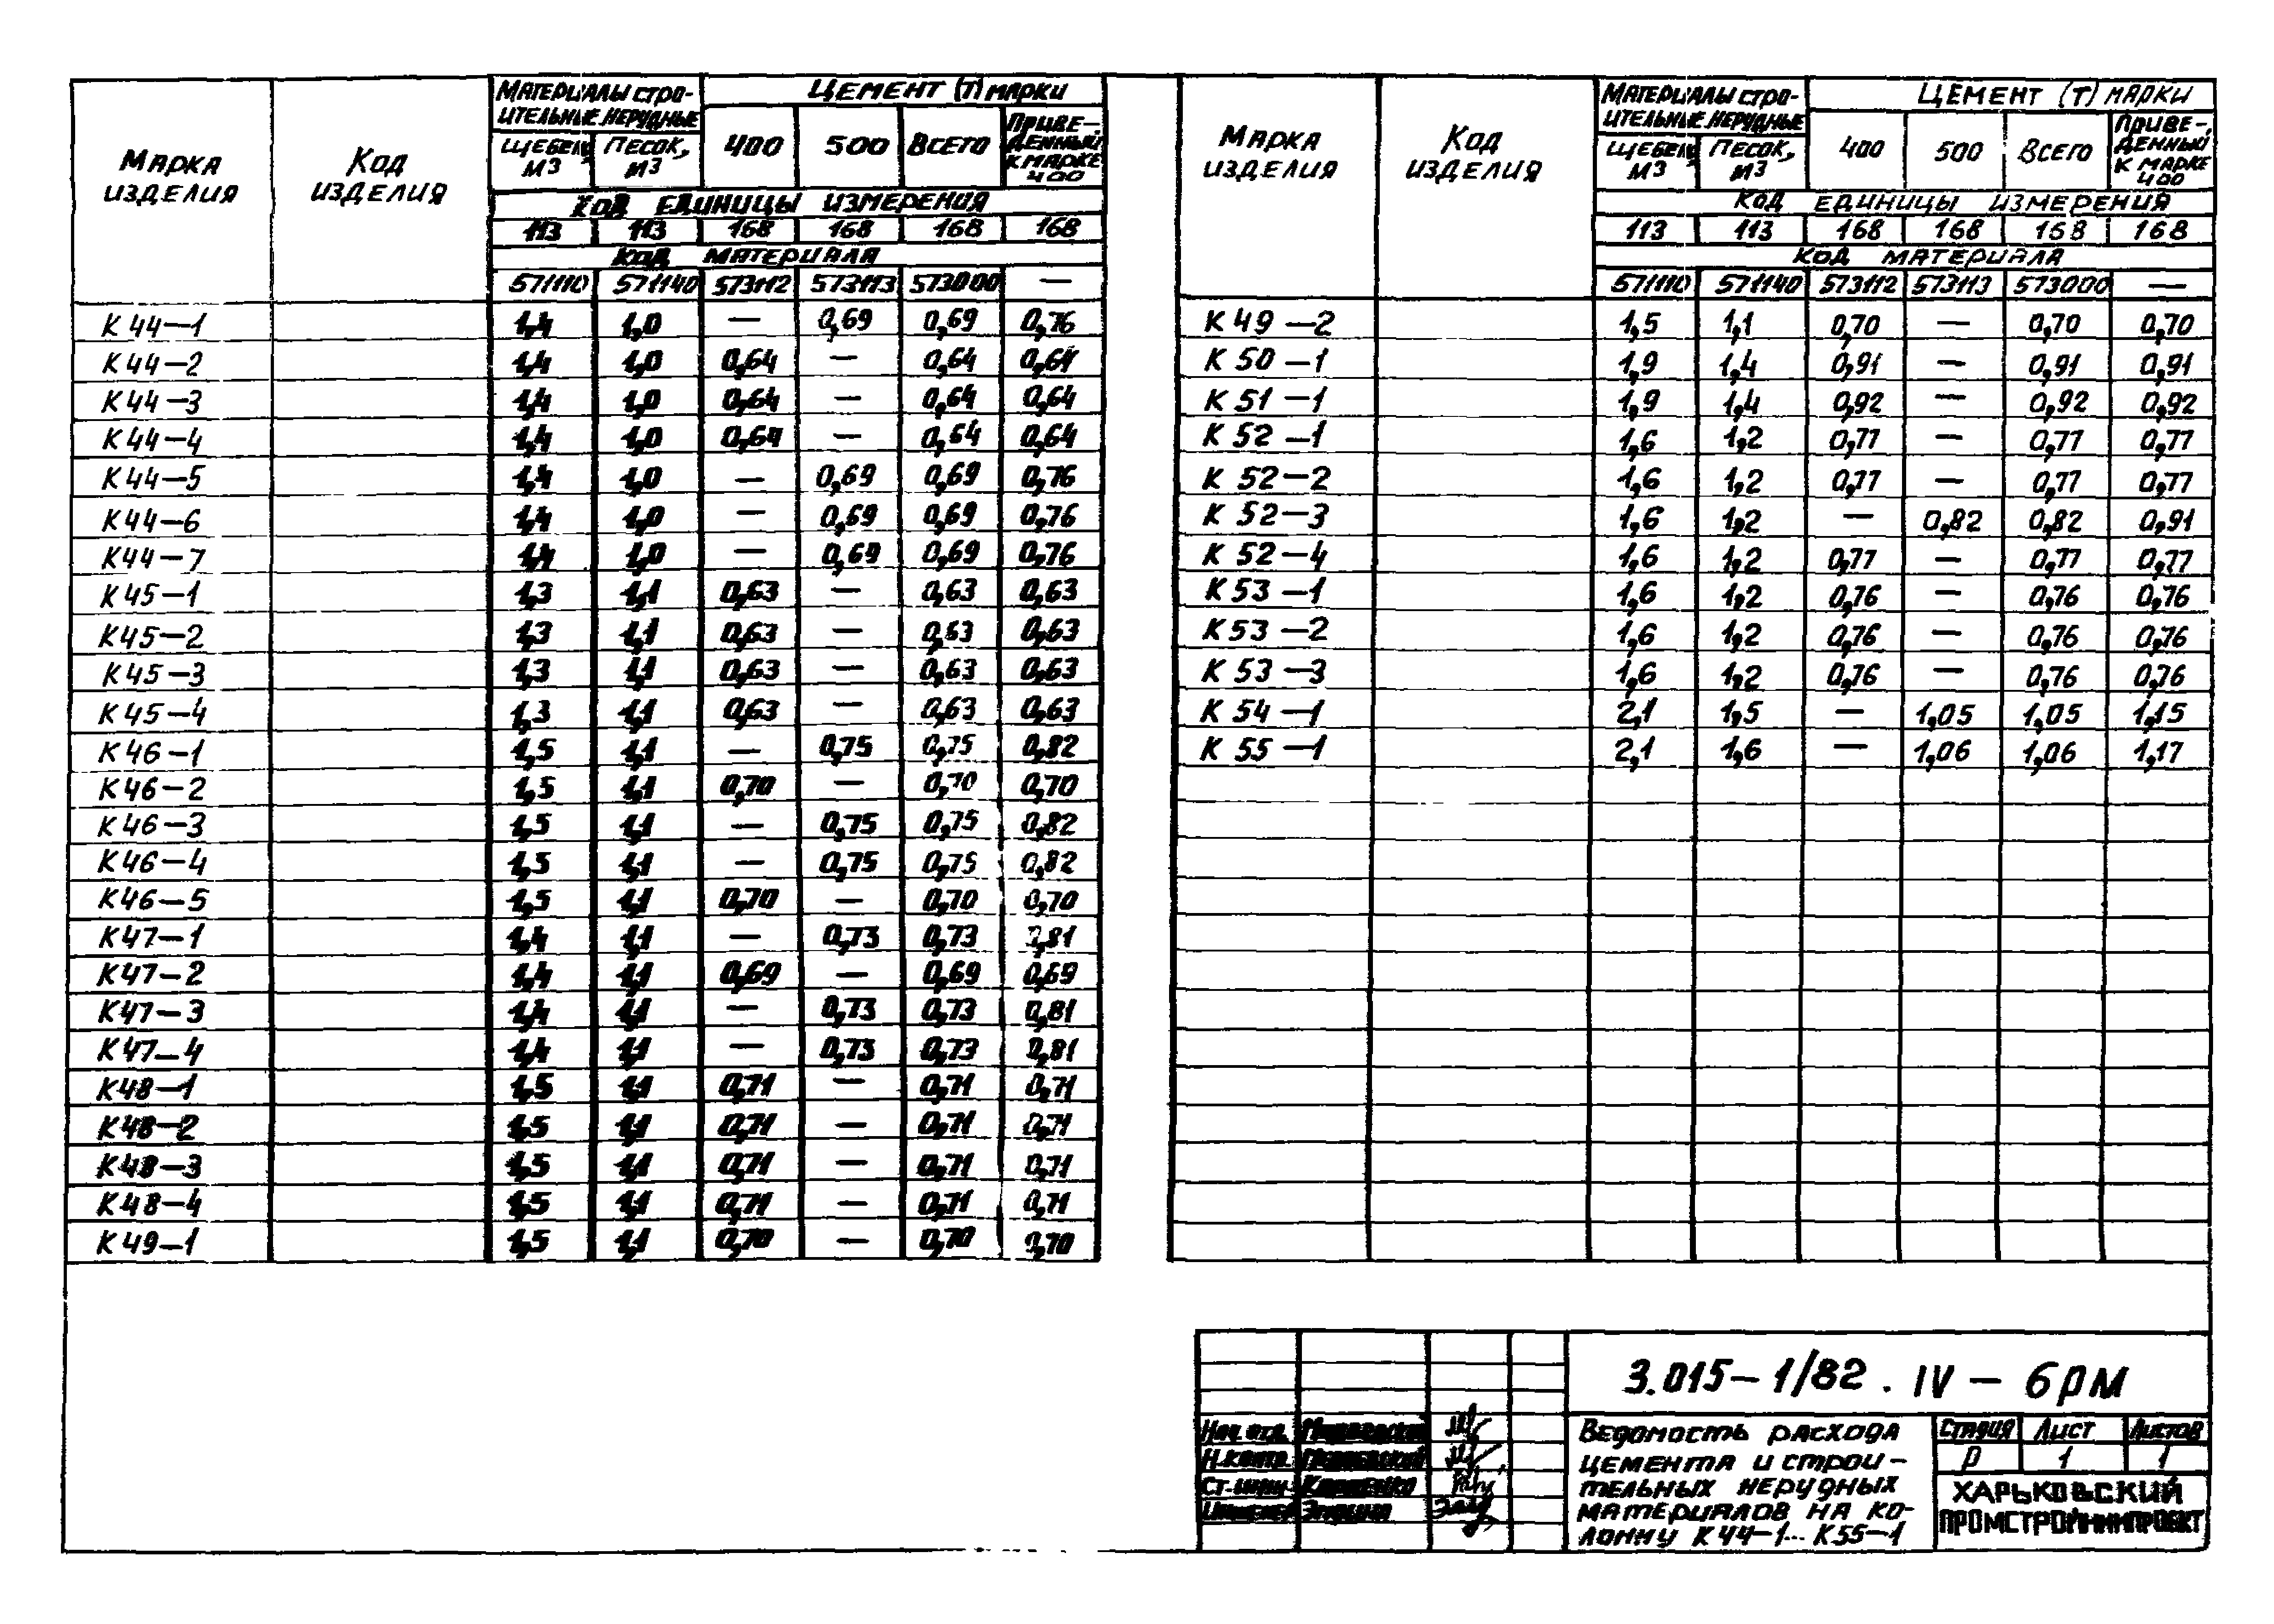 Марка изделия | Код изделия | Материалы строительные нерудные | Цемент (т) марки
Щебень, м3 | Песок, м3 | 400 | 500 | Всего | Приведенный к марке 400
Код единицы измерения
113 | 113 | 168 | 168 | 168 | 168
Код материала
571110 | 571140 | 573112 | 573113 | 573000 | —
К44-1 1,4 1,0 — 0,69 0,69 0,76
К44-2 1,4 1,0 0,64 — 0,64 0,64
К44-3 1,4 1,0 0,64 — 0,64 0,64
К44-4 1,4 1,0 0,64 — 0,64 0,64
К44-5 1,4 1,0 — 0,69 0,69 0,76
К44-6 1,4 1,0 — 0,69 0,69 0,76
К44-7 1,4 1,0 — 0,69 0,69 0,76
К45-1 1,3 1,1 0,63 — 0,63 0,63
К45-2 1,3 1,1 0,63 — 0,63 0,63
К45-3 1,3 1,1 0,63 — 0,63 0,63
К45-4 1,3 1,1 0,63 — 0,63 0,63
К46-1 1,5 1,1 — 0,75 0,75 0,82
К46-2 1,5 1,1 0,70 — 0,70 0,70
К46-3 1,5 1,1 — 0,75 0,75 0,82
К46-4 1,5 1,1 — 0,75 0,75 0,82
К46-5 1,5 1,1 0,70 — 0,70 0,70
К47-1 1,4 1,1 — 0,73 0,73 0,81
К47-2 1,4 1,1 0,69 — 0,69 0,69
К47-3 1,4 1,1 — 0,73 0,73 0,81
К47-4 1,4 1,1 — 0,73 0,73 0,81
К48-1 1,5 1,1 0,71 — 0,71 0,71
К48-2 1,5 1,1 0,71 — 0,71 0,71
К48-3 1,5 1,1 0,71 — 0,71 0,71
К48-4 1,5 1,1 0,71 — 0,71 0,71
К49-1 1,5 1,1 0,70 — 0,70 0,70
Марка изделия | Код изделия | Материалы строительные нерудные | Цемент (т) марки
Щебень, м3 | Песок, м3 | 400 | 500 | Всего | Приведенный к марке 400
Код единицы измерения
113 | 113 | 168 | 168 | 168 | 168
Код материала
571110 | 571140 | 573112 | 573113 | 573000 | —
К49-2 1,5 1,1 0,70 — 0,70 0,70
К50-1 1,9 1,4 0,91 — 0,91 0,91
К51-1 1,9 1,4 0,92 — 0,92 0,92
К52-1 1,6 1,2 0,77 — 0,77 0,77
К52-2 1,6 1,2 0,77 — 0,77 0,77
К52-3 1,6 1,2 — 0,82 0,82 0,91
К52-4 1,6 1,2 0,77 — 0,77 0,77
К53-1 1,6 1,2 0,76 — 0,76 0,76
К53-2 1,6 1,2 0,76 — 0,76 0,76
К53-3 1,6 1,2 0,76 — 0,76 0,76
К54-1 2,1 1,5 — 1,05 1,05 1,15
К55-1 2,1 1,6 — 1,06 1,06 1,17
3.015-1/82. IV - 6РМ
Нач. отд.
Н.контр.
Ст. инж. Карпенко
Инженер
Ведомость расхода
цемента и строи-
тельных нерудных
материалов на ко-
лонну К44-1... К55-1
Стадия Лист Листов
Р 1 1
ХАРЬКОВСКИЙ
ПРОМСТРОЙНИИПРОЕКТ